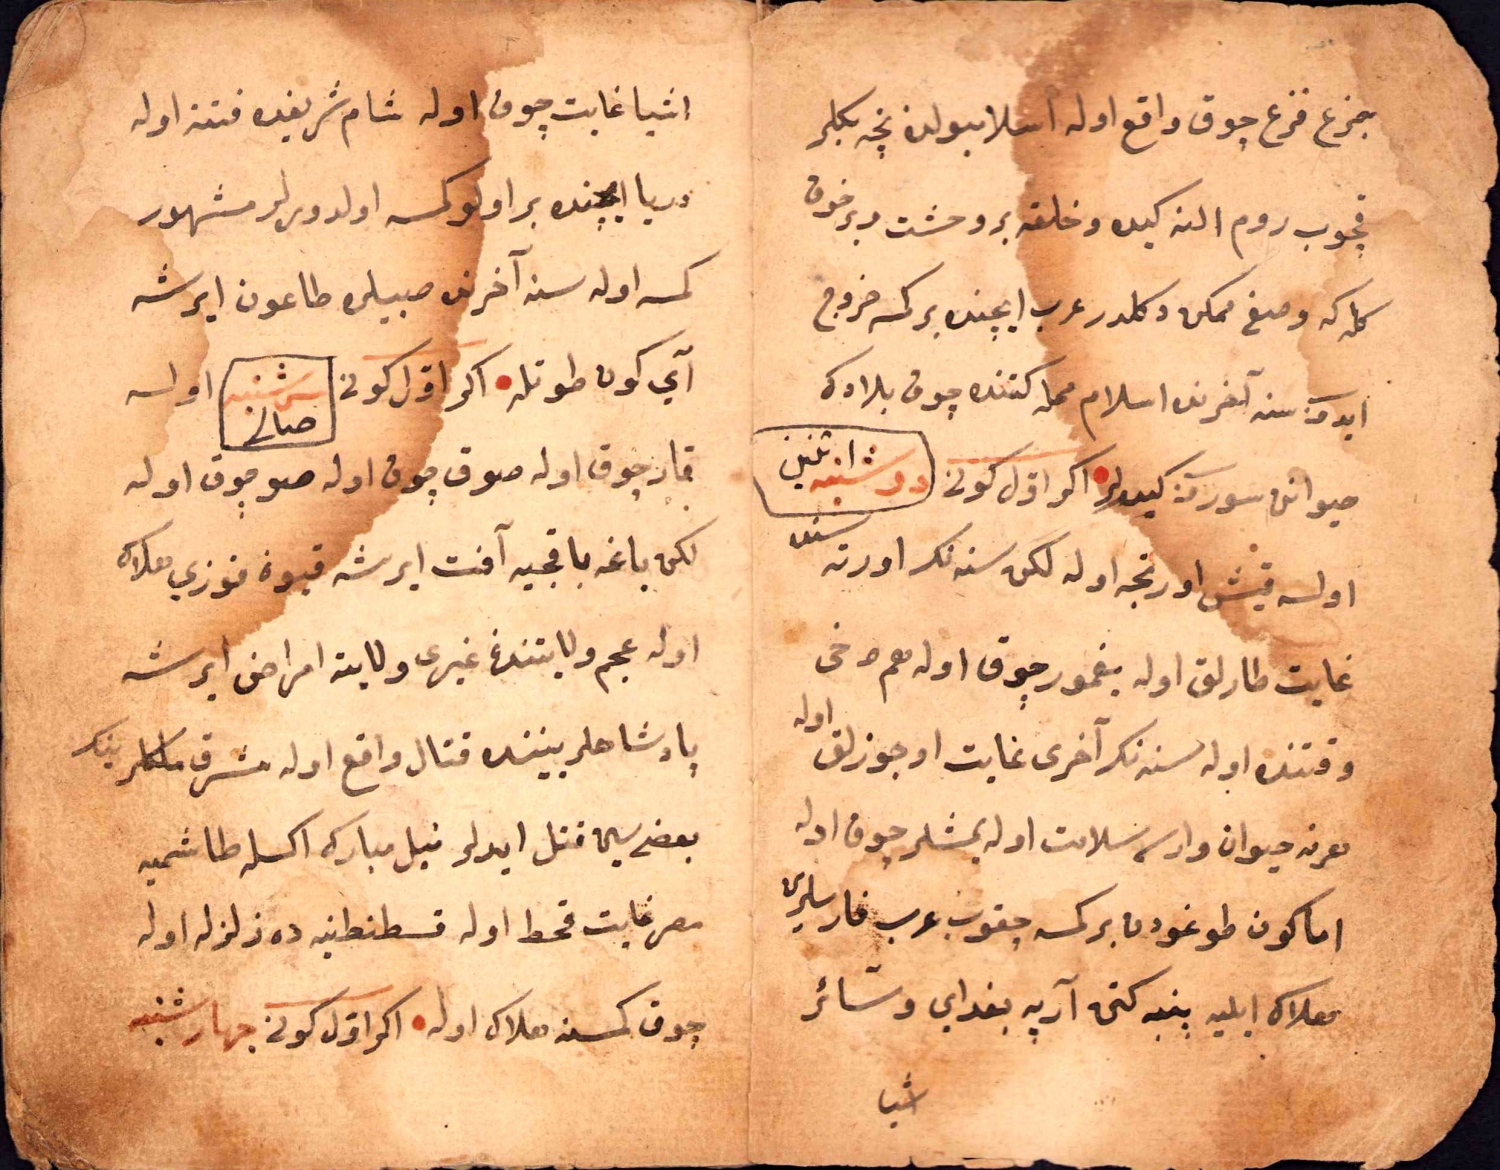 جزع فزع چوق واقع اوله اسلامبولدن نچه بكلر
قچوب روم النه كيده و خلقه بر وحشت و بر خوف
كله كه وصفی ممكن دكلدر عرب ایچنده بر كمسه خروج
ایده سنه آخرنده اسلام مملكتنده چوق بلاد
حیوانی سوره كیده لر اكر اوّل كونی دو شنبه اثنین
اولسه قیش اورتجه اوله لكن سنه نك اورته سنده
غایت طارلق اوله یغمور چوق اوله هم دخی
وقتنده اوله سنه نك آخری غایت اوجوزلق اوله
هرنه حیوان وارسه سلامت اوله یمشلر چوق اوله
اما كون طوغودن بر كمسه چقوب عرب فارسلرین
هلاك ایلیه پنبه كتن آرپه بغدای و سائر
شیا
اشیا غایت چوق اوله شام شریفده فتنه اوله
دریا ایچنده بر اولو كمسه اولدورلر مشهور
كمسه اوله سنه آخرنده صبیلره طاعون ایرشه
آی كون طوتله اكر اوّل كونی سه شنبه صالی اولسه
قار چوق اوله صوق چوق اوله صو چوق اوله
لكن باغه باقچیه آفت ایرشه قیون قوزی هلاك
اوله عجم ولایتندن غیری ولایته امراض ایرشه
پادشاهلر بیننده قتال واقع اوله مشرق بیك
بعضی سین قتل ایدلر نیل مبارك اكسله طاشمیه
مصر غایت قحط اوله قسطنطنیه ده زلزله اوله
چوق كمسنه هلاك اوله اكر اوّل كونی چهار شنبه